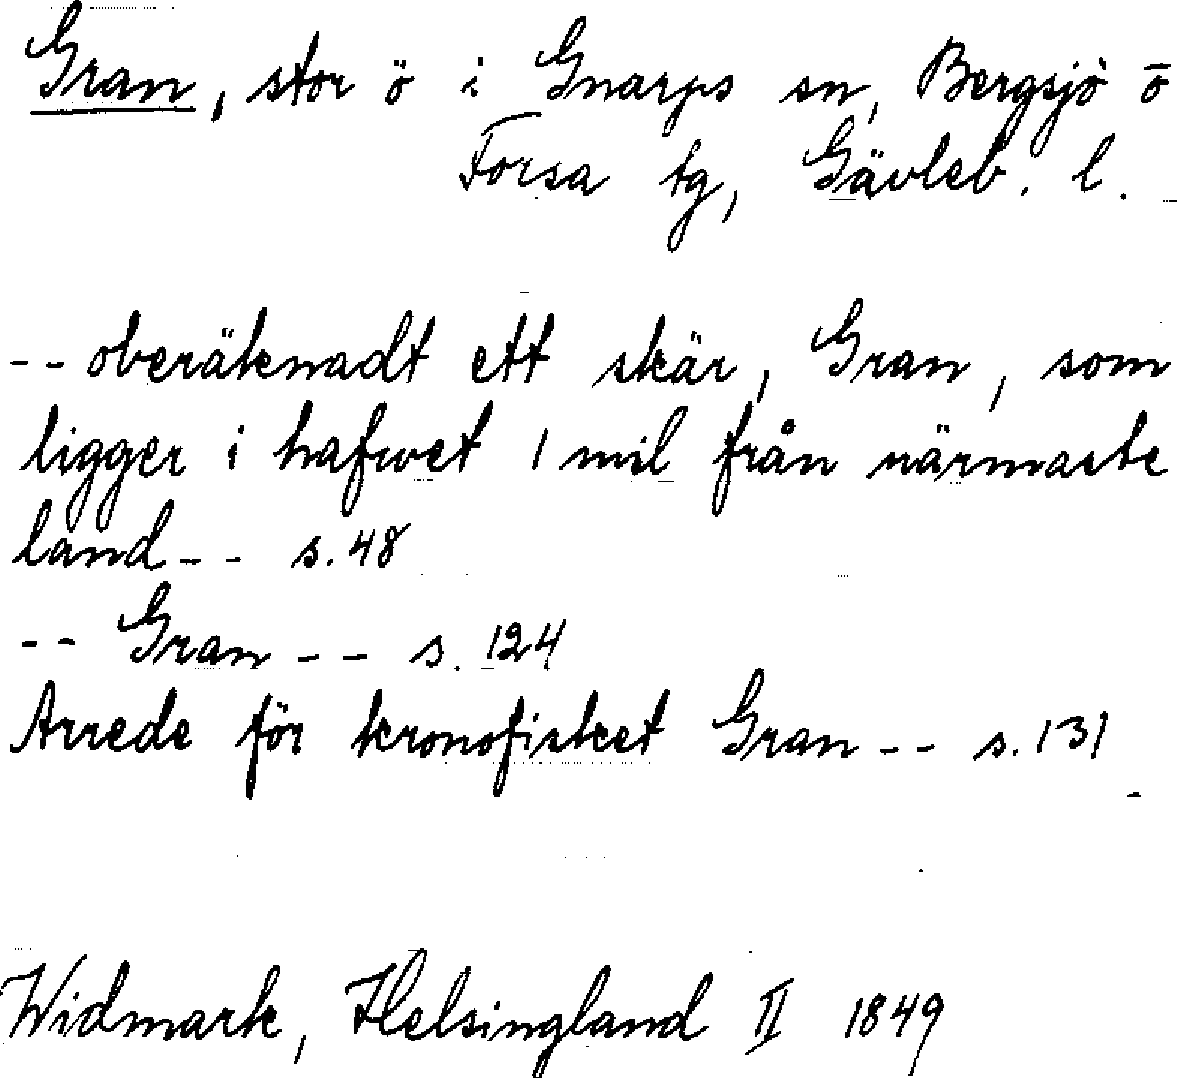 Gran, stor ö i Gnarps sn, Bergsjö o
Forsa tg, Gävleb. l.
-- oberäknadt ett skär, Gran, som
ligger i hafwet 1 mil från närmaste
land -- s. 48
-- Gran -- s. 124
Arrede för kronofisket Gran -- s. 131
Widmark, Helsingland II 1849